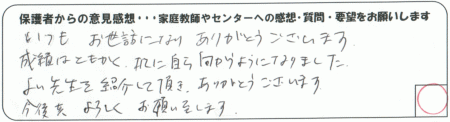 保護者からの意見感想・・・家庭教師やセンターへの感想・質問・要望をお願いします
いつも お世話になり ありがとうございます.
成績はともかく、机に自ら向かうようになりました.
よい先生を紹介して頂き、ありがとうございます.
今後共 よろしく お願い致します.